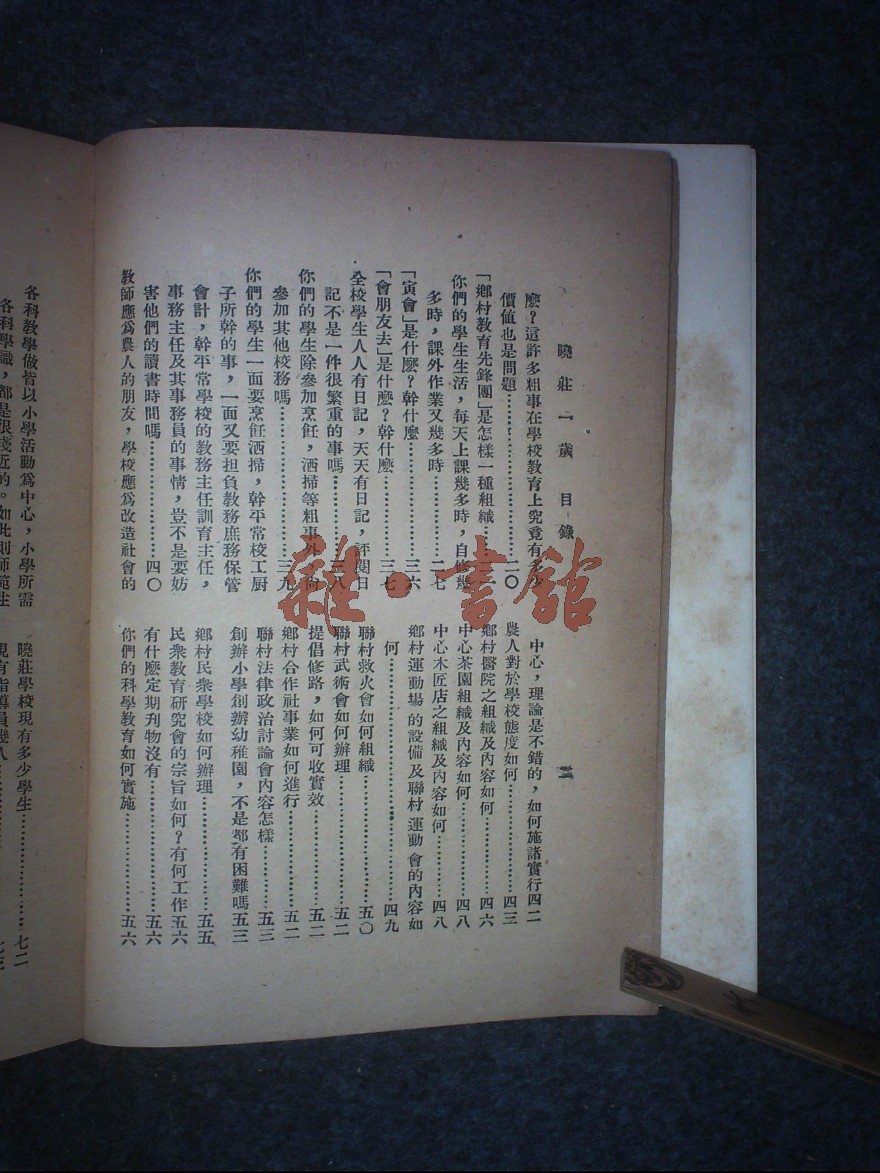 曉莊一歲 目錄
麽？這許多粗事在學校教育上究竟有多少
價値也是問題……………………二〇
「鄉村教育先鋒團」是怎樣一種組織……
你們的學生生活，每天上課幾多時，自修幾
多時，課外作業又幾多時…………二七
「寅會」是什麽？幹什麽……………三六
「會朋友去」是什麽？幹什麽…………三七
全校學生人人有日記，天天有日記，評閱日
記不是一件很繁重的事嗎…………三八
你們的學生除參加烹飪，洒掃等粗事外，尙
參加其他校務嗎……………………三九
你們的學生一面要烹飪洒掃，幹平常校工厨
子所幹的事，一面又要担負教務庶務保管
會計，幹平常學校的教務主任訓育主任，
事務主任及其事務員的事情，豈不是要妨
害他們的讀書時間嗎………………四〇
教師應爲農人的朋友，學校應爲改造社會的
中心，理論是不錯的，如何施諸實行四二
農人對於學校態度如何………………四三
鄉村醫院之組織及內容如何…………四六
中心茶園組織及內容如何……………四八
中心木匠店之組織及內容如何………四八
鄉村運動場的設備及聯村運動會的內容如
何……………………………………四九
聯村救火會如何組織…………………五〇
聯村武術會如何辦理…………………五二
提倡修路，如何可收實效……………五二
鄉村合作社事業如何進行……………五二
聯村法律政治討論會內容怎樣………五三
創辦小學創辦幼稚園，不是都有困難嗎五三
鄉村民衆學校如何辦理………………五五
民衆教育研究會的宗旨如何？有何工作五六
有什麽定期刊物沒有…………………五六
你們的科學教育如何實施……………五六
各科教學做皆以小學活動爲中心，小學所需
各科學識，都是很淺近的。如此則師範生
曉莊學校現有多少學生………………七二
現有指導員幾人………………………七三
雜·書館